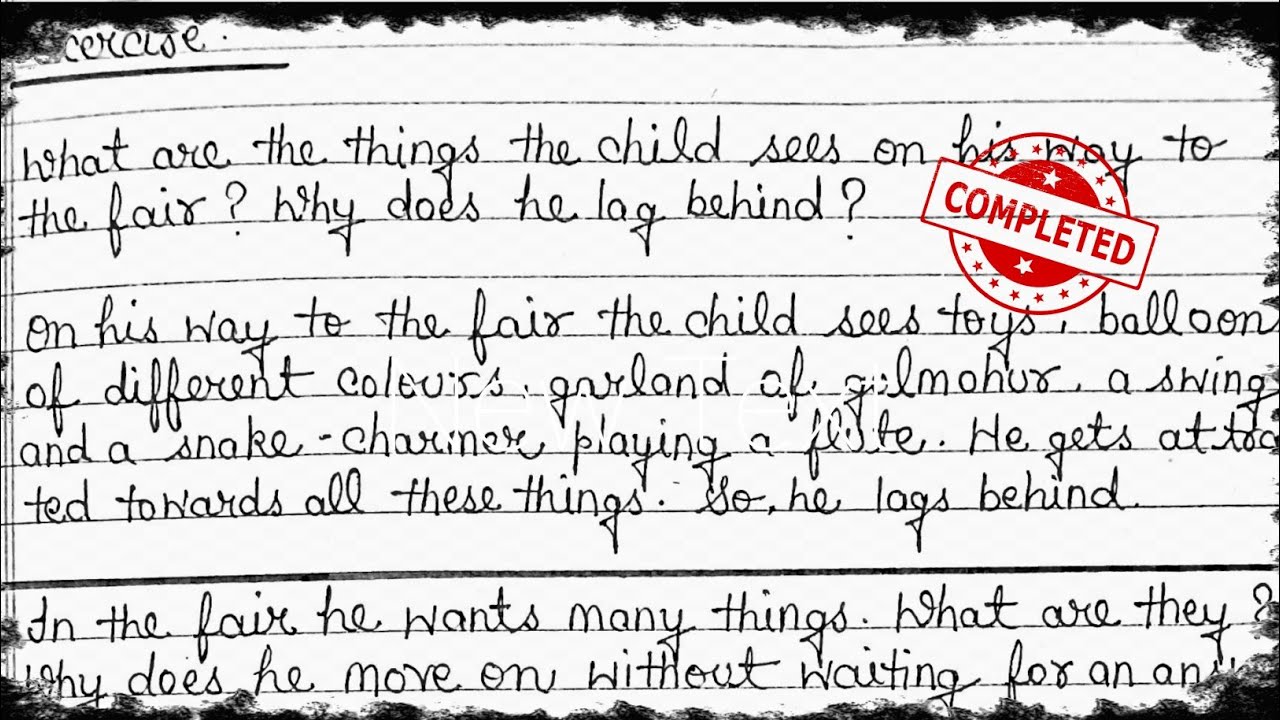 cercise.
What are the things the child sees on his way to
the fair? Why does he lag behind?
COMPLETED
On his way to the fair the child sees toys, balloon
of different colours, garland of gulmohur, a swing
New Text
and a snake-charmer playing a flute. He gets attrac
ted towards all these things. So, he lags behind.
In the fair he wants many things. What are they?
Why does he move on without waiting for an ans